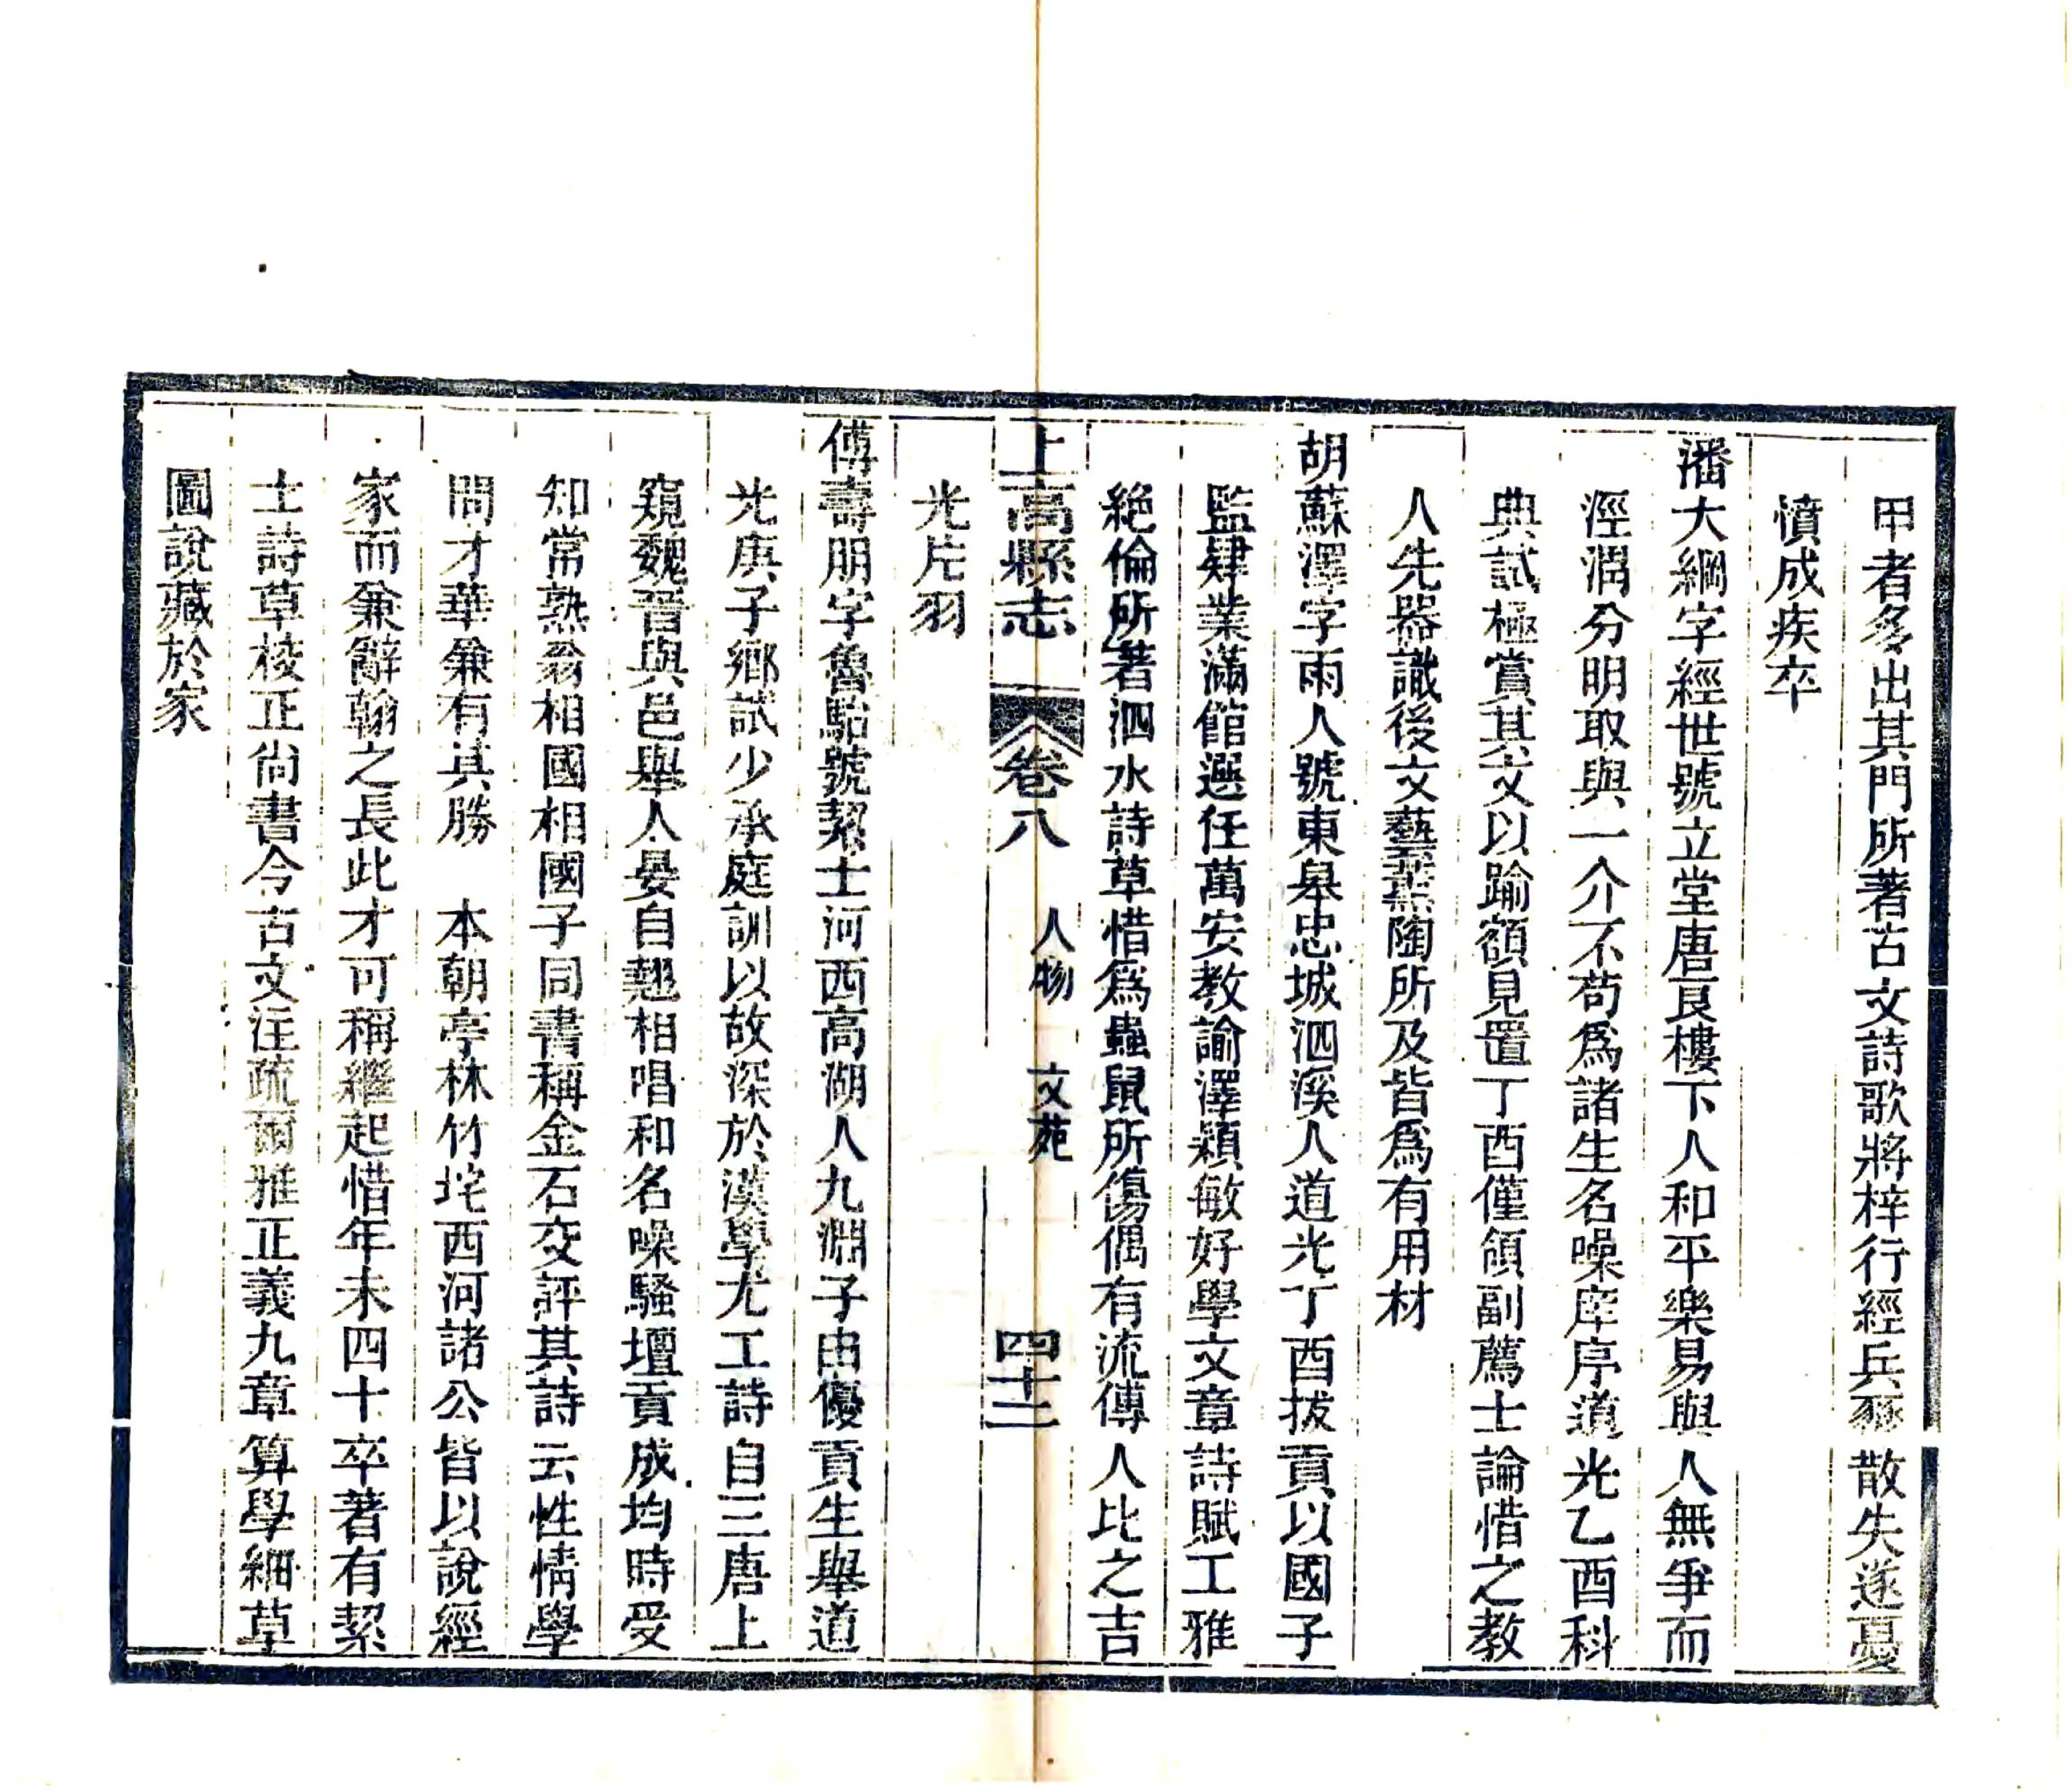 甲者多出其門所著古文詩歌將梓行經兵燹散失遂憂
憤成疾卒
潘大綱字經世號立堂唐良樓下人和平樂易與人無爭而
涇渭分明取與一介不苟爲諸生名噪庠序道光乙酉科
典試極賞其文以踰額見置丁酉僅領副薦士論惜之教
人先器識後文藝薰陶所及皆爲有用材
胡蘇澤字雨人號東皋忠城泗溪人道光丁酉拔貢以國子
監肄業滿館選任萬安教諭澤穎敏好學文章詩賦工雅
絕倫所著泗水詩草惜爲蟲鼠所傷偶有流傳人比之吉
光片羽
上高縣志
卷八
人物
文苑
四十二
傅壽朋字魯駘號絜士河西高湖人九淵子由優貢生舉道
光庚子鄉試少承庭訓以故深於漢學尤工詩自三唐上
窺魏晉與邑舉人晏自翹相唱和名噪騷壇貢成均時受
知常熟翁相國相國子同書稱金石交評其詩云性情學
問才華兼有其勝　本朝亭林竹垞西河諸公皆以說經
家而兼辭翰之長此才可稱繼起惜年未四十卒著有絜
士詩草校正尙書今古文注疏爾雅正義九章算學細草
圖說藏於家